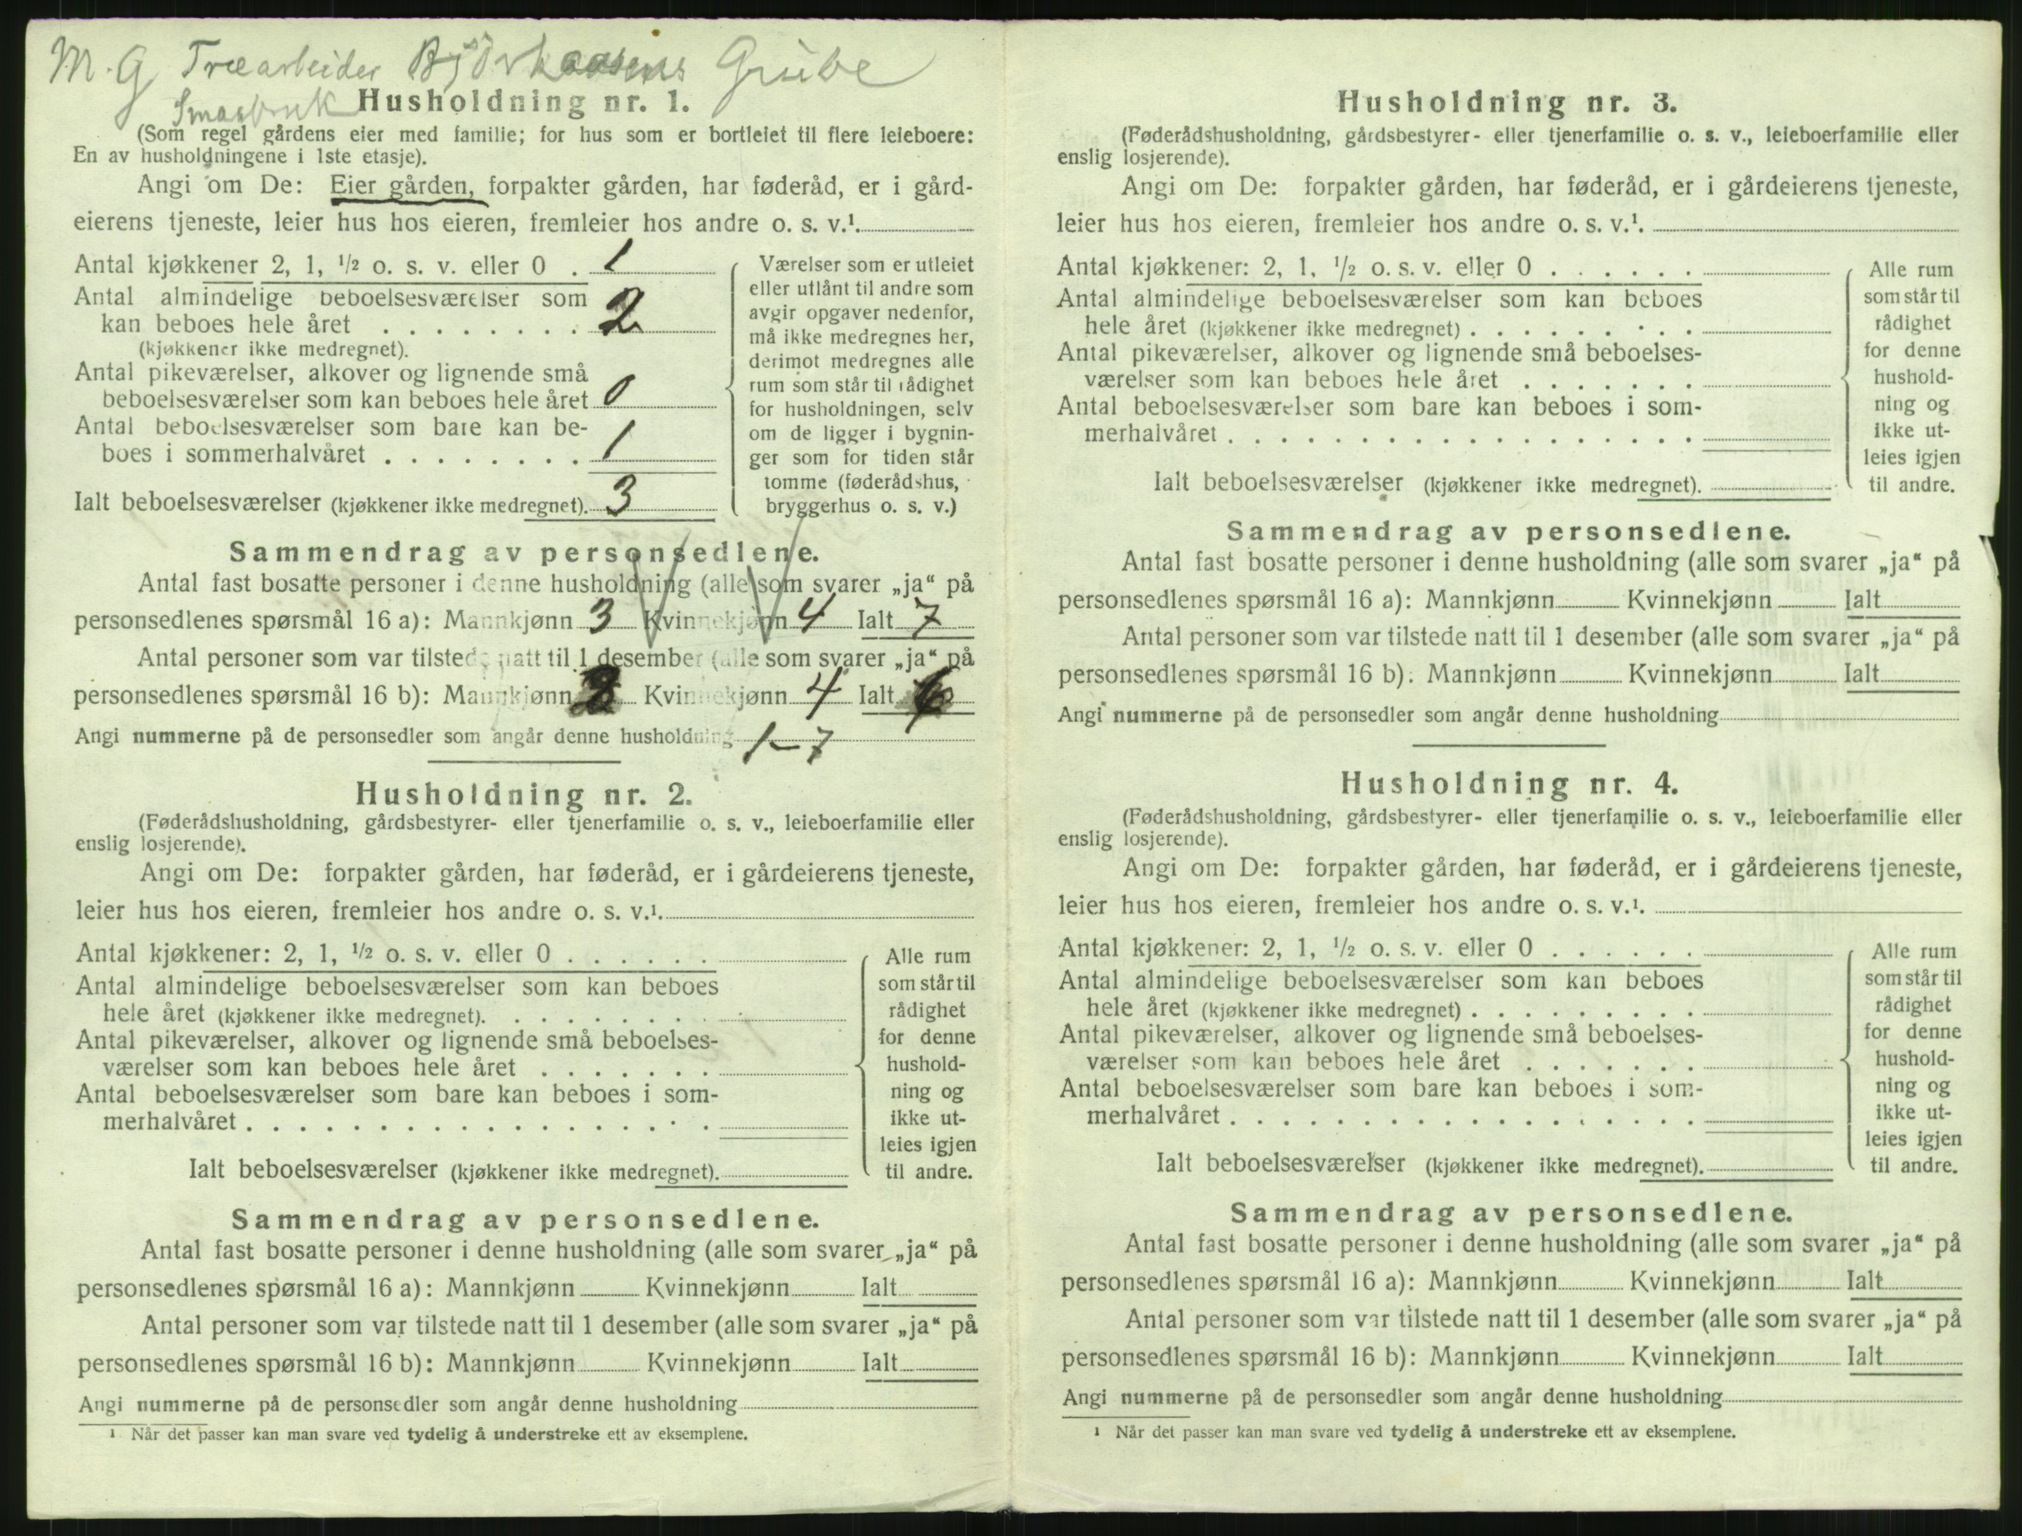 M. G Træarbeider Bjørkaasens Grube
Smaabruk
Husholdning nr. 1.
(Som regel gårdens eier med familie; for hus som er bortleiet til flere leieboere:
En av husholdningene i 1ste etasje).
Angi om De: Eier gården, forpakter gården, har føderåd, er i gård-
eierens tjeneste, leier hus hos eieren, fremleier hos andre o. s. v.¹.
Antal kjøkkener 2, 1, ½ o. s. v. eller 0 . 1
Antal almindelige beboelsesværelser som
kan beboes hele året . . . . . . . . 2
(kjøkkener ikke medregnet).
Antal pikeværelser, alkover og lignende små
beboelsesværelser som kan beboes hele året 0
Antal beboelsesværelser som bare kan be-
boes i sommerhalvåret . . . . . . . . 1
Ialt beboelsesværelser (kjøkkener ikke medregnet). 3
Værelser som er utleiet
eller utlånt til andre som
avgir opgaver nedenfor,
må ikke medregnes her,
derimot medregnes alle
rum som står til rådighet
for husholdningen, selv
om de ligger i bygnin-
ger som for tiden står
tomme (føderådshus,
bryggerhus o. s. v.)
Sammendrag av personsedlene.
Antal fast bosatte personer i denne husholdning (alle som svarer „ja“ på
personsedlenes spørsmål 16 a): Mannkjønn 3 Kvinnekjønn 4 Ialt 7
Antal personer som var tilstede natt til 1 desember (alle som svarer „ja“ på
personsedlenes spørsmål 16 b): Mannkjønn 2 Kvinnekjønn 4 Ialt 6
Angi nummerne på de personsedler som angår denne husholdning 1-7
Husholdning nr. 2.
(Føderådshusholdning, gårdsbestyrer- eller tjenerfamilie o. s. v., leieboerfamilie eller
enslig losjerende).
Angi om De: forpakter gården, har føderåd, er i gårdeierens tjeneste,
leier hus hos eieren, fremleier hos andre o. s. v.¹.
Antal kjøkkener: 2, 1, ½ o. s. v. eller 0 . . . . . .
Antal almindelige beboelsesværelser som kan beboes
hele året (kjøkkener ikke medregnet). . . . . . . . .
Antal pikeværelser, alkover og lignende små beboelses-
værelser som kan beboes hele året . . . . . . .
Antal beboelsesværelser som bare kan beboes i som-
merhalvåret . . . . . . . . . . . . . . . . . .
Ialt beboelsesværelser (kjøkkener ikke medregnet).
Alle rum
som står til
rådighet
for denne
hushold-
ning og
ikke ut-
leies igjen
til andre.
Sammendrag av personsedlene.
Antal fast bosatte personer i denne husholdning (alle som svarer „ja“ på
personsedlenes spørsmål 16 a): Mannkjønn Kvinnekjønn Ialt
Antal personer som var tilstede natt til 1 desember (alle som svarer „ja“ på
personsedlenes spørsmål 16 b): Mannkjønn Kvinnekjønn Ialt
Angi nummerne på de personsedler som angår denne husholdning
¹ Når det passer kan man svare ved tydelig å understreke ett av eksemplene.
Husholdning nr. 3.
(Føderådshusholdning, gårdsbestyrer- eller tjenerfamilie o. s. v., leieboerfamilie eller
enslig losjerende).
Angi om De: forpakter gården, har føderåd, er i gårdeierens tjeneste,
leier hus hos eieren, fremleier hos andre o. s. v.¹.
Antal kjøkkener: 2, 1, ½ o. s. v. eller 0 . . . . . .
Antal almindelige beboelsesværelser som kan beboes
hele året (kjøkkener ikke medregnet) . . . . . . . . .
Antal pikeværelser, alkover og lignende små beboelses-
værelser som kan beboes hele året . . . . . . .
Antal beboelsesværelser som bare kan beboes i som-
merhalvåret . . . . . . . . . . . . . . . . . .
Ialt beboelsesværelser (kjøkkener ikke medregnet).
Alle rum
som står til
rådighet
for denne
hushold-
ning og
ikke ut-
leies igjen
til andre.
Sammendrag av personsedlene.
Antal fast bosatte personer i denne husholdning (alle som svarer „ja“ på
personsedlenes spørsmål 16 a): Mannkjønn Kvinnekjønn Ialt
Antal personer som var tilstede natt til 1 desember (alle som svarer „ja“ på
personsedlenes spørsmål 16 b). Mannkjønn Kvinnekjønn Ialt
Angi nummerne på de personsedler som angår denne husholdning
Husholdning nr. 4.
(Føderådshusholdning, gårdsbestyrer- eller tjenerfamilie o. s. v., leieboerfamilie eller
enslig losjerende).
Angi om De: forpakter gården, har føderåd, er i gårdeierens tjeneste,
leier hus hos eieren, fremleier hos andre o. s. v.¹.
Antal kjøkkener: 2, 1, ½ o. s. v. eller 0 . . . . . .
Antal almindelige beboelsesværelser som kan beboes
hele året (kjøkkener ikke medregnet) . . . . . . . . .
Antal pikeværelser, alkover og lignende små beboelses-
værelser som kan beboes hele året . . . . . . .
Antal beboelsesværelser som bare kan beboes i som-
merhalvåret . . . . . . . . . . . . . . . . . .
Ialt beboelsesværelser (kjøkkener ikke medregnet).
Alle rum
som står til
rådighet
for denne
hushold-
ning og
ikke ut-
leies igjen
til andre.
Sammendrag av personsedlene.
Antal fast bosatte personer i denne husholdning (alle som svarer „ja“ på
personsedlenes spørsmål 16 a): Mannkjønn Kvinnekjønn Ialt
Antal personer som var tilstede natt til 1 desember (alle som svarer „ja“ på
personsedlenes spørsmål 16 b): Mannkjønn Kvinnekjønn Ialt
Angi nummerne på de personsedler som angår denne husholdning
¹ Når det passer kan man svare ved tydelig å understreke ett av eksemplene.